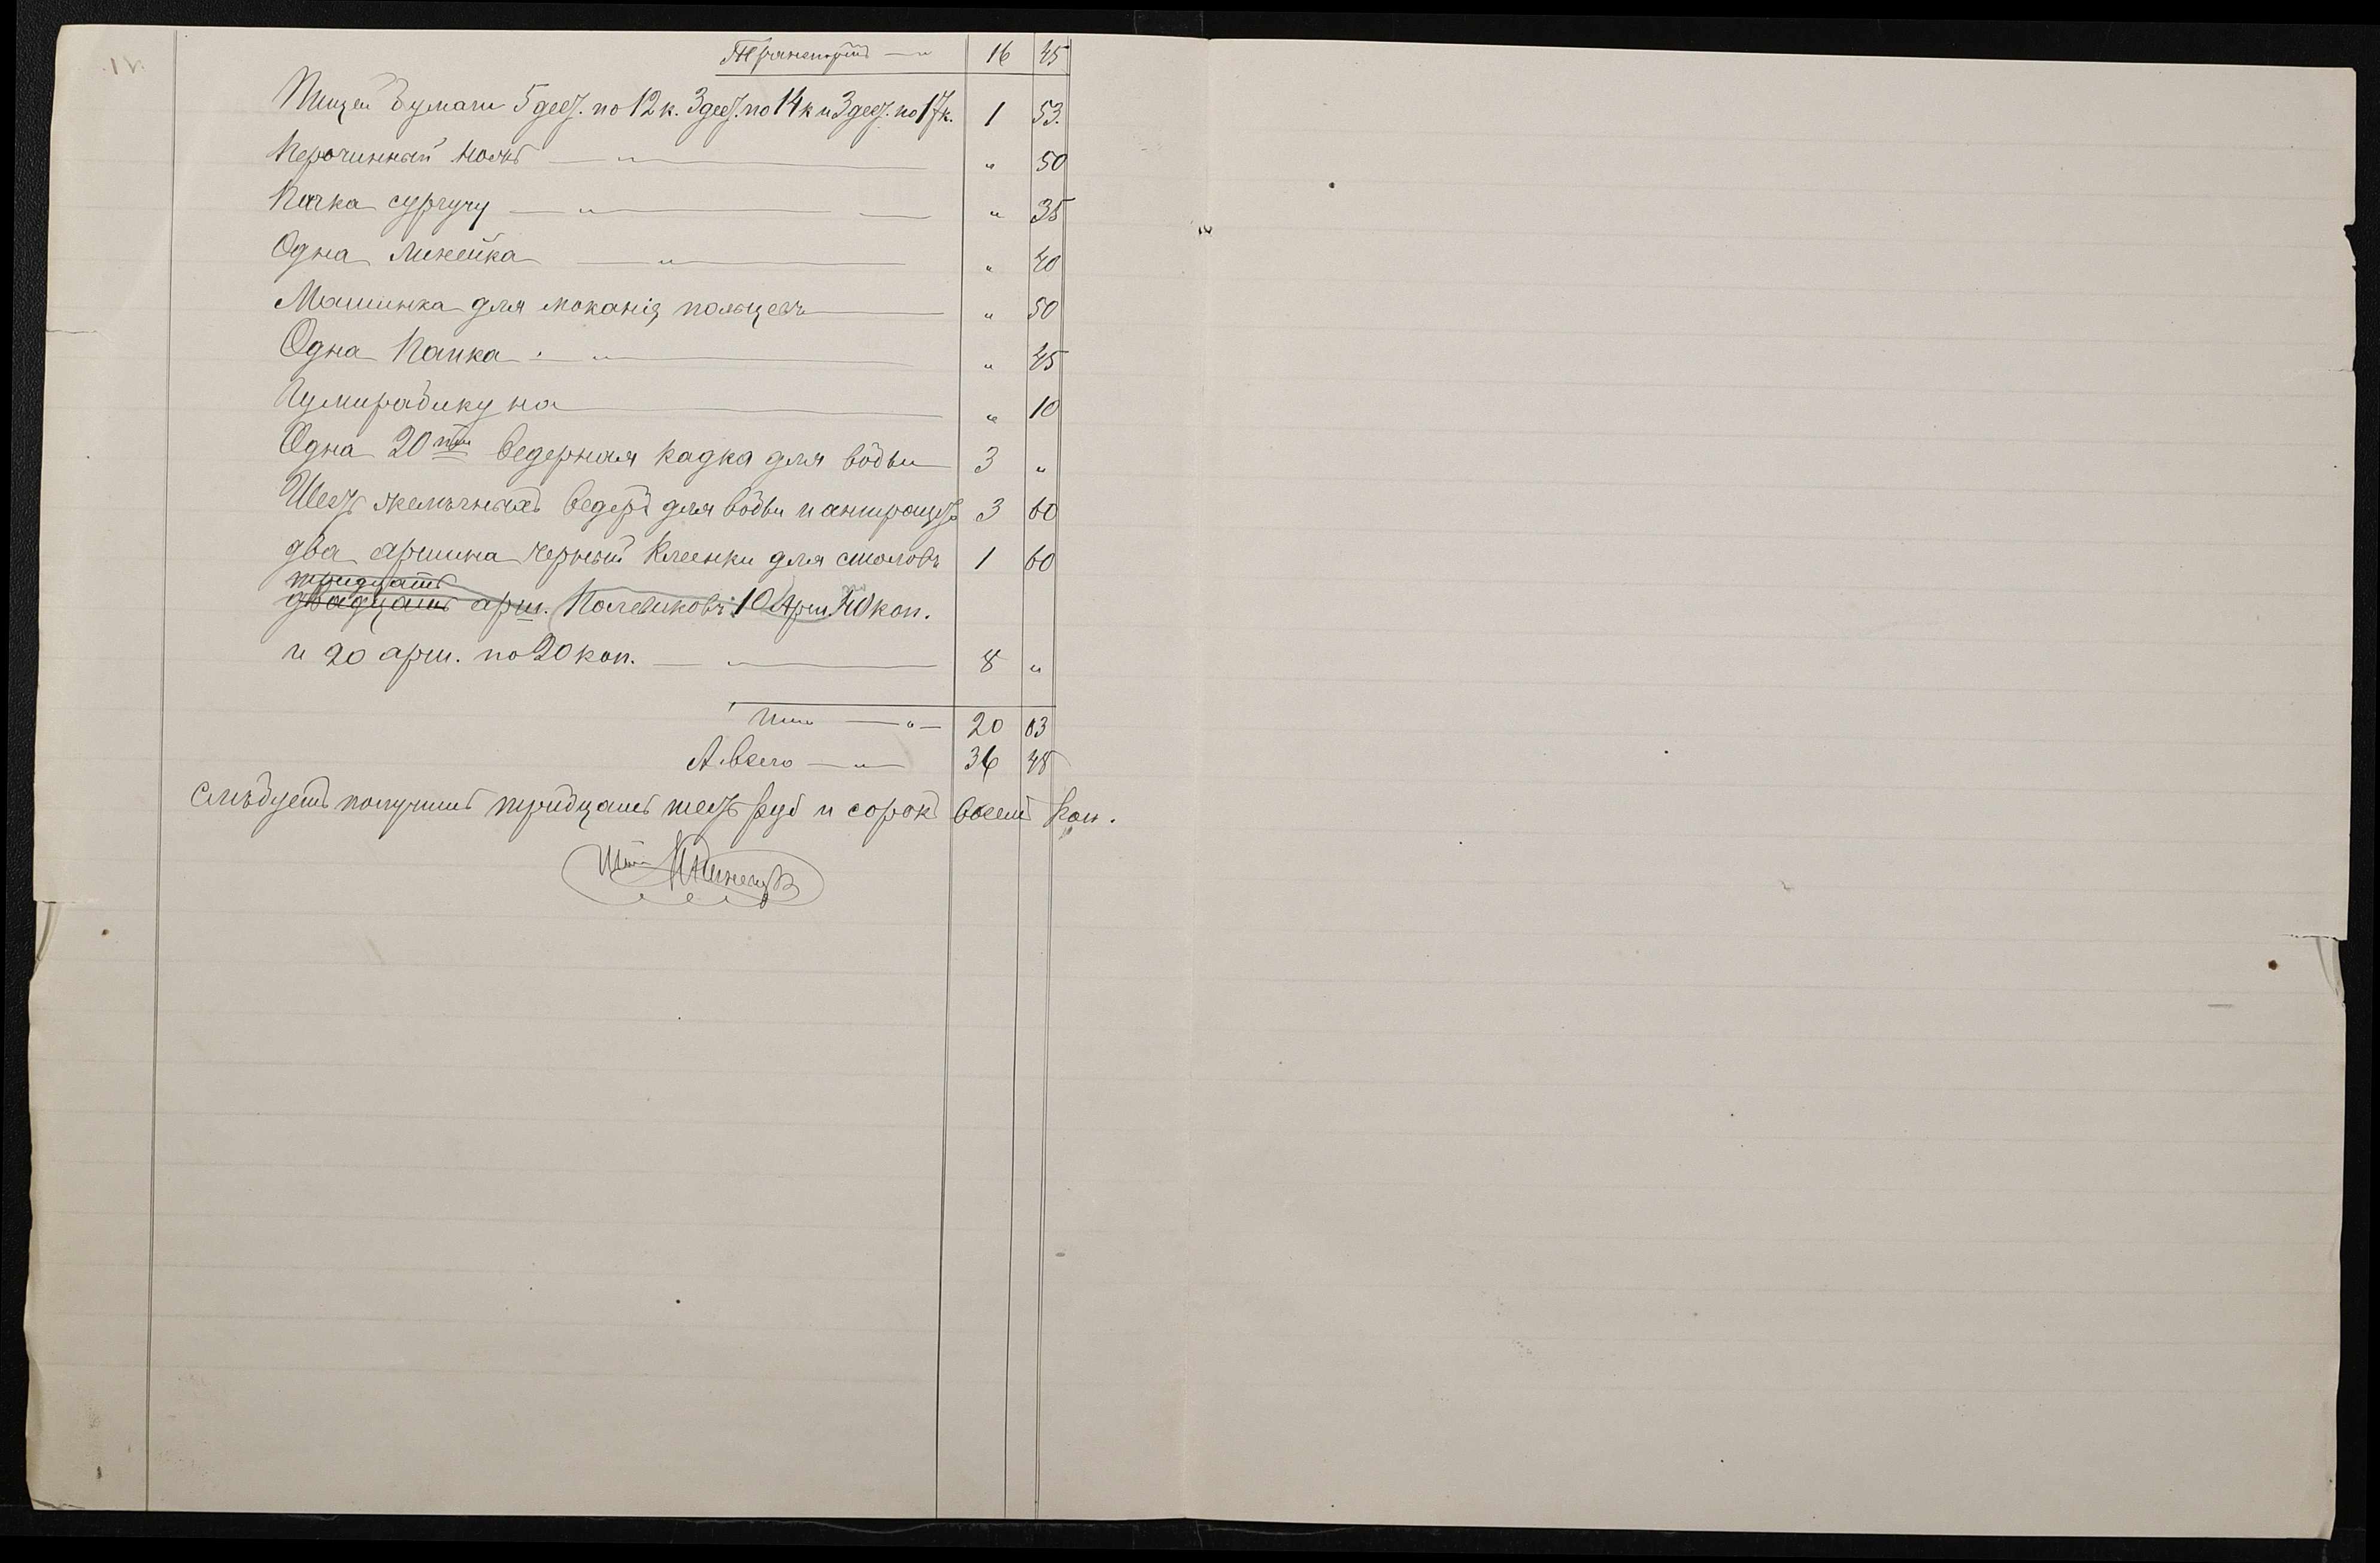 Транспортъ — " 16 45
Писчей Бумаги 5 дест. по 12 к. 3 дест. по 14 к и 3 дест. по 17 к. 1 53.
Перочинный ножъ — " — " 50
Пачка сургучу — " — " 35
Одна Линейка — " — " 40
Машинка для моканія пальцевъ — " 50
Одна Папка — " — " 45
Гумирабику на — " 10
Одна 20ти ведерная кадка для воды 3 "
Шесть ведеръ для воды и 3 60
два аршина черный клеенки для столовъ 1 60
тридцать
двадцать арш. Половиковъ 10 Арш 40 коп.
и 20 арш. по 20 коп. — " — 8 "
Итого — " — 20 03
А всего — " — 36 48
Слѣдуетъ получить тридцать шесть руб и сорокъ восемь коп.